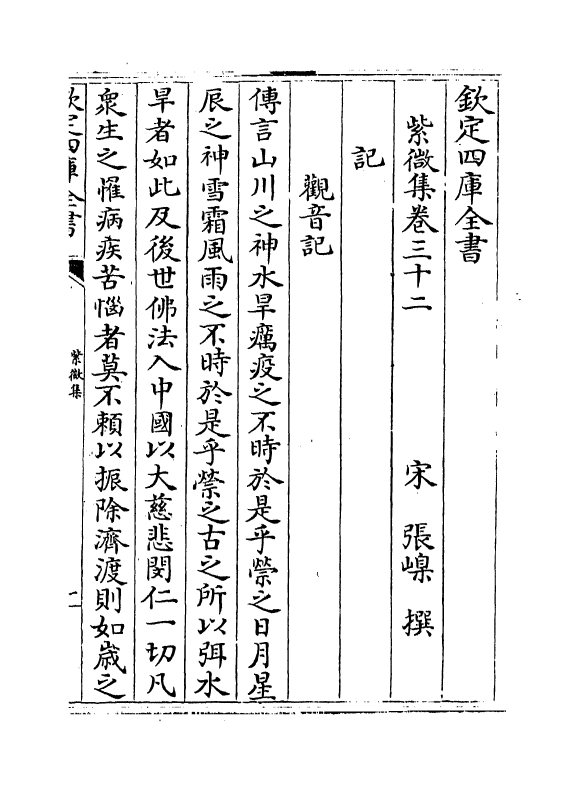 欽定四庫全書
紫微集卷三十二
宋 張嵲 撰
記
觀音記
傳言山川之神水旱癘疫之不時於是乎禜之日月星
辰之神雪霜風雨之不時於是乎禜之古之所以弭水
旱者如此及後世佛法入中國以大慈悲閔仁一切凡
衆生之罹病疾苦惱者莫不頼以振除濟渡則如歳之
欽定四庫全書
紫微集